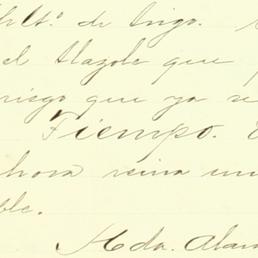 Hlts. de trigo.
el tlazole que
riesgo que ya se
Tiempo.
Ahora reina un
ble.
Hda. Alam